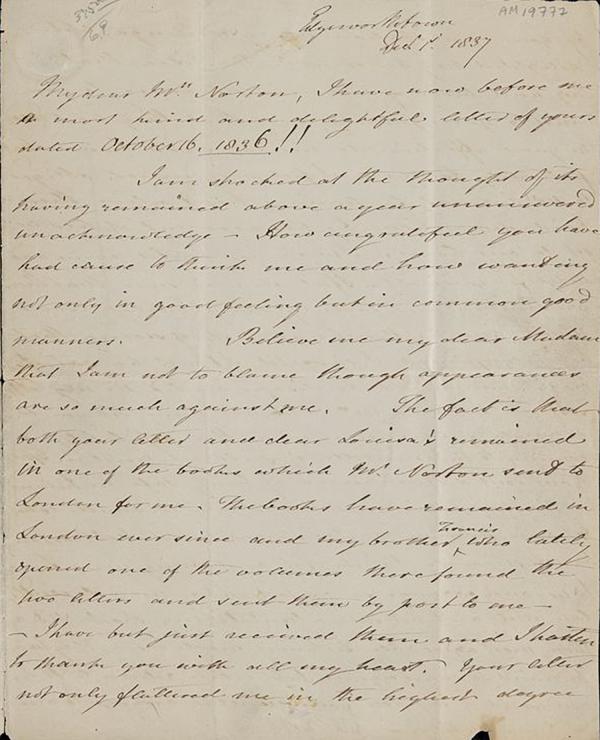 AM 19772
Edgeworthstown
Dec 1st. 1837
My dear Mrs Norton, I have now before me
a most kind and delightful letter of yours
dated October 16. 1836!!
I am shocked at the thought of its
having remained above a year unanswered
unacknowledge - How ungrateful you have
had cause to think me and how wanting
not only in good feeling but in common good
manners. Believe me my dear Madam
that I am not to blame though appearances
are so much against me. The fact is that
both your letter and dear Louisa's remained
in one of the books which Mr. Norton sent to
London for me. The books have remained in
London ever since and my brother Francis who lately
opened one of the volumes there found the
two letters and sent them by post to me -
- I have but just received them and I hasten
to thank you with all my heart. Your letter
not only flattered me in the highest degree